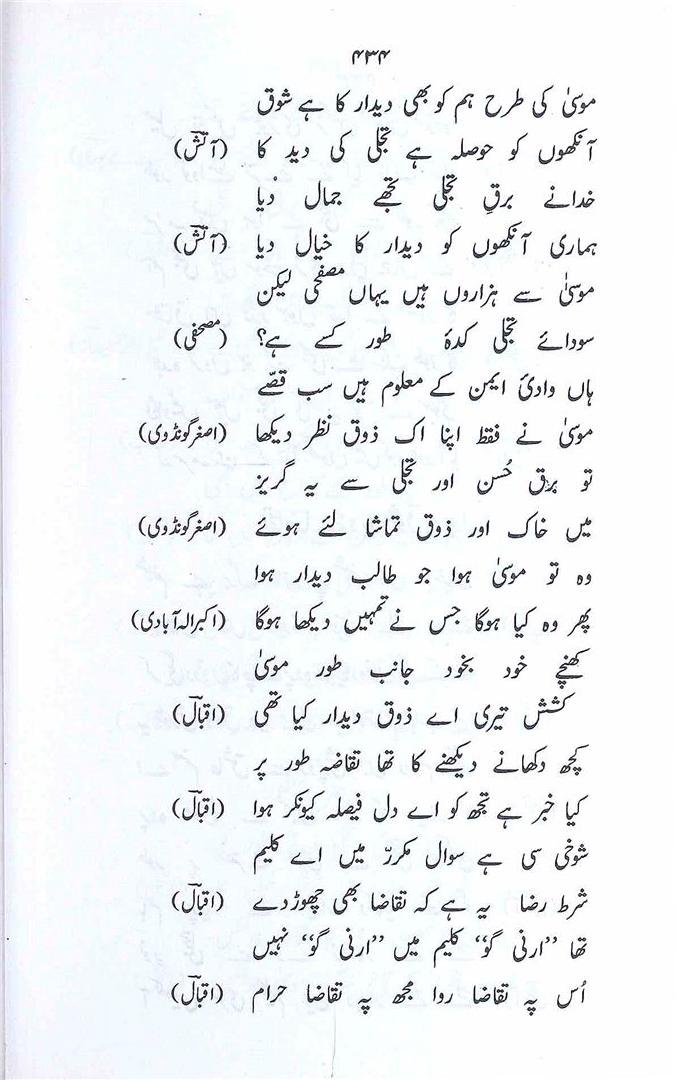 ۴۳۴
موسیٰ کی طرح ہم کو بھی دیدار کا ہے شوق
آنکھوں کو حوصلہ ہے تجلی کی دید کا (آتشؔ)
خدانے برقِ تجلی تجھے جمال دیا
ہماری آنکھوں کو دیدار کا خیال دیا (آتشؔ)
موسیٰ سے ہزاروں ہیں یہاں مصحفی لیکن
سودائے تجلی کدۂ طور کسے ہے؟ (مصحفی)
ہاں وادیٔ ایمن کے معلوم ہیں سب قصّے
موسیٰ نے فقط اپنا اک ذوق نظر دیکھا (اصغرگونڈوی)
تو برق حُسن اور تجلی سے یہ گریز
میں خاک اور ذوق تماشا لئے ہوئے (اصغرگونڈوی)
وہ تو موسیٰ ہوا جو طالب دیدار ہوا
پھر وہ کیا ہوگا جس نے تمہیں دیکھا ہوگا (اکبرالہ آبادی)
کھنچے خود بخود جانب طور موسیٰ
کشش تیری اے ذوق دیدار کیا تھی (اقبالؔ)
کچھ دکھانے دیکھنے کا تھا تقاضہ طور پر
کیا خبر ہے تجھ کو اے دل فیصلہ کیونکر ہوا (اقبالؔ)
شوخی سی ہے سوال مکررّ میں اے کلیم
شرط رضا یہ ہے کہ تقاضا بھی چھوڑدے (اقبالؔ)
تھا ’’ارنی گوٗ‘‘ کلیم میں ’’ارنی گوٗ‘‘ نہیں
اُس پہ تقاضا روا مجھ پہ تقاضا حرام (اقبالؔ)